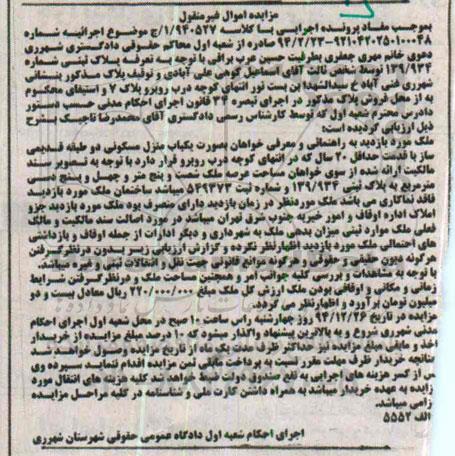 مزایده اموال غیرمنقول
بموجب مفاد پرونده اجرایی با کلاسه ۹۴۰۵۲۷/۱/ج موضوع اجرائیه شماره
۹۴/۲/۲۳-۹۲۱۰۴۲۰۲۵۰۱۰۰۰۴۸ صادره از شعبه اول محاکم حقوقی دادگستری شهرری
دعوی خانم مهری جعفری بطرفیت حسین عرب براقی با توجه به تعرفه پلاک ثبتی شماره
۱۳۹/۹۳۴ توسط شخص ثالث آقای اسماعیل کوهی علی آبادی و توقیف پلاک مذکور بنشانی
شهرری فنی آباد خ سیدالشهدا بن بست نور انتهای کوچه درب روبرو پلاک ۷ و استیفای محکوم
به از محل فروش پلاک مذکور در اجرای تبصره ۳۴ قانون اجرای احکام مدنی حسب دستور
دادرس محترم شعبه اول که توسط کارشناس رسمی دادگستری آقای محمدرضا تاجیک بشرح
ذیل ارزیابی گردیده است:
ملک مورد بازدید به راهنمائی و معرفی خواهان بصورت یکباب منزل مسکونی دو طبقه قدیمی
ساز با قدمت حداقل ۲۰ سال که در انتهای کوچه درب روبرو قرار دارد با توجه به تصویر سند
مالکیت ارائه شده از سوی خواهان مساحت عرصه ملک شصت و پنج متر و چهل و پنج دسی
مترمربع به پلاک ثبتی ۱۳۹/۹۳۴ و شماره ثبت ۵۴۹۳۷۳ میباشد ساختمان ملک مورد بازدید
فاقد نماکاری می باشد ملک موردنظر در زمان بازدید دارای متصرف بوده ملک مورد بازدید جزو
املاک اداره اوقاف و امور خیریه جنوب شرق تهران میباشد در مورد اصالت سند مالکیت و مالک
فعلی ملک موارد ثبتی میزان بدهی ملک به شهرداری و دیگر ادارات از جمله اوقاف و بازداشتی
های احتمالی ملک مورد بازدید اظهارنظر نکرده و گزارش ارزیابی زیر بدون درنظرگرفتن
هرگونه دیون حقیقی و حقوقی و هرگونه موانع قانونی جهت نقل و انتقالات ثبتی و غیره میباشد.
با توجه به مشاهدات و بررسی کلیه جوانب امر و همچنین مساحت ملک و درنظرگرفتن شرایط
زمانی و مکانی و اوقافی بودن ملک ارزش کل ملک مبلغ ۲۲۰/۰۰۰/۰۰۰ ریال معادل بیست و دو
میلیون تومان برآورد و اظهارنظر می گردد.
مزایده در تاریخ ۹۴/۱۲/۲۶ روز چهارشنبه راس ساعت ۱۰ صبح در محل شعبه اول اجرای احکام
مدنی شهرری شروع و به بالاترین پیشنهاد واگذار میشود که ۱۰ درصد مبلغ مزایده از خریدار
اخذ و مابقی مبلغ مزایده نیز حداکثر ظرف مدت یک ماه از تاریخ مزایده وصول خواهد شد
نتانجه خریدار ظرف مهلت مقرر نسبت به پرداخت مابقی ثمن مزایده اقدام ننماید سپرده وی
س از کسر هزینه های اجرایی به نفع صندوق دولت ضبط خواهد شد کلیه هزینه های انتقال مورد
زایده به عهده خریدار میباشد به همراه داشتن کارت ملی و شناسنامه در کلیه مراحل مزایده
زامی میباشد.
الف ۵۵۵۲
اجرای احکام شعبه اول دادگاه عمومی حقوقی شهرستان شهرری